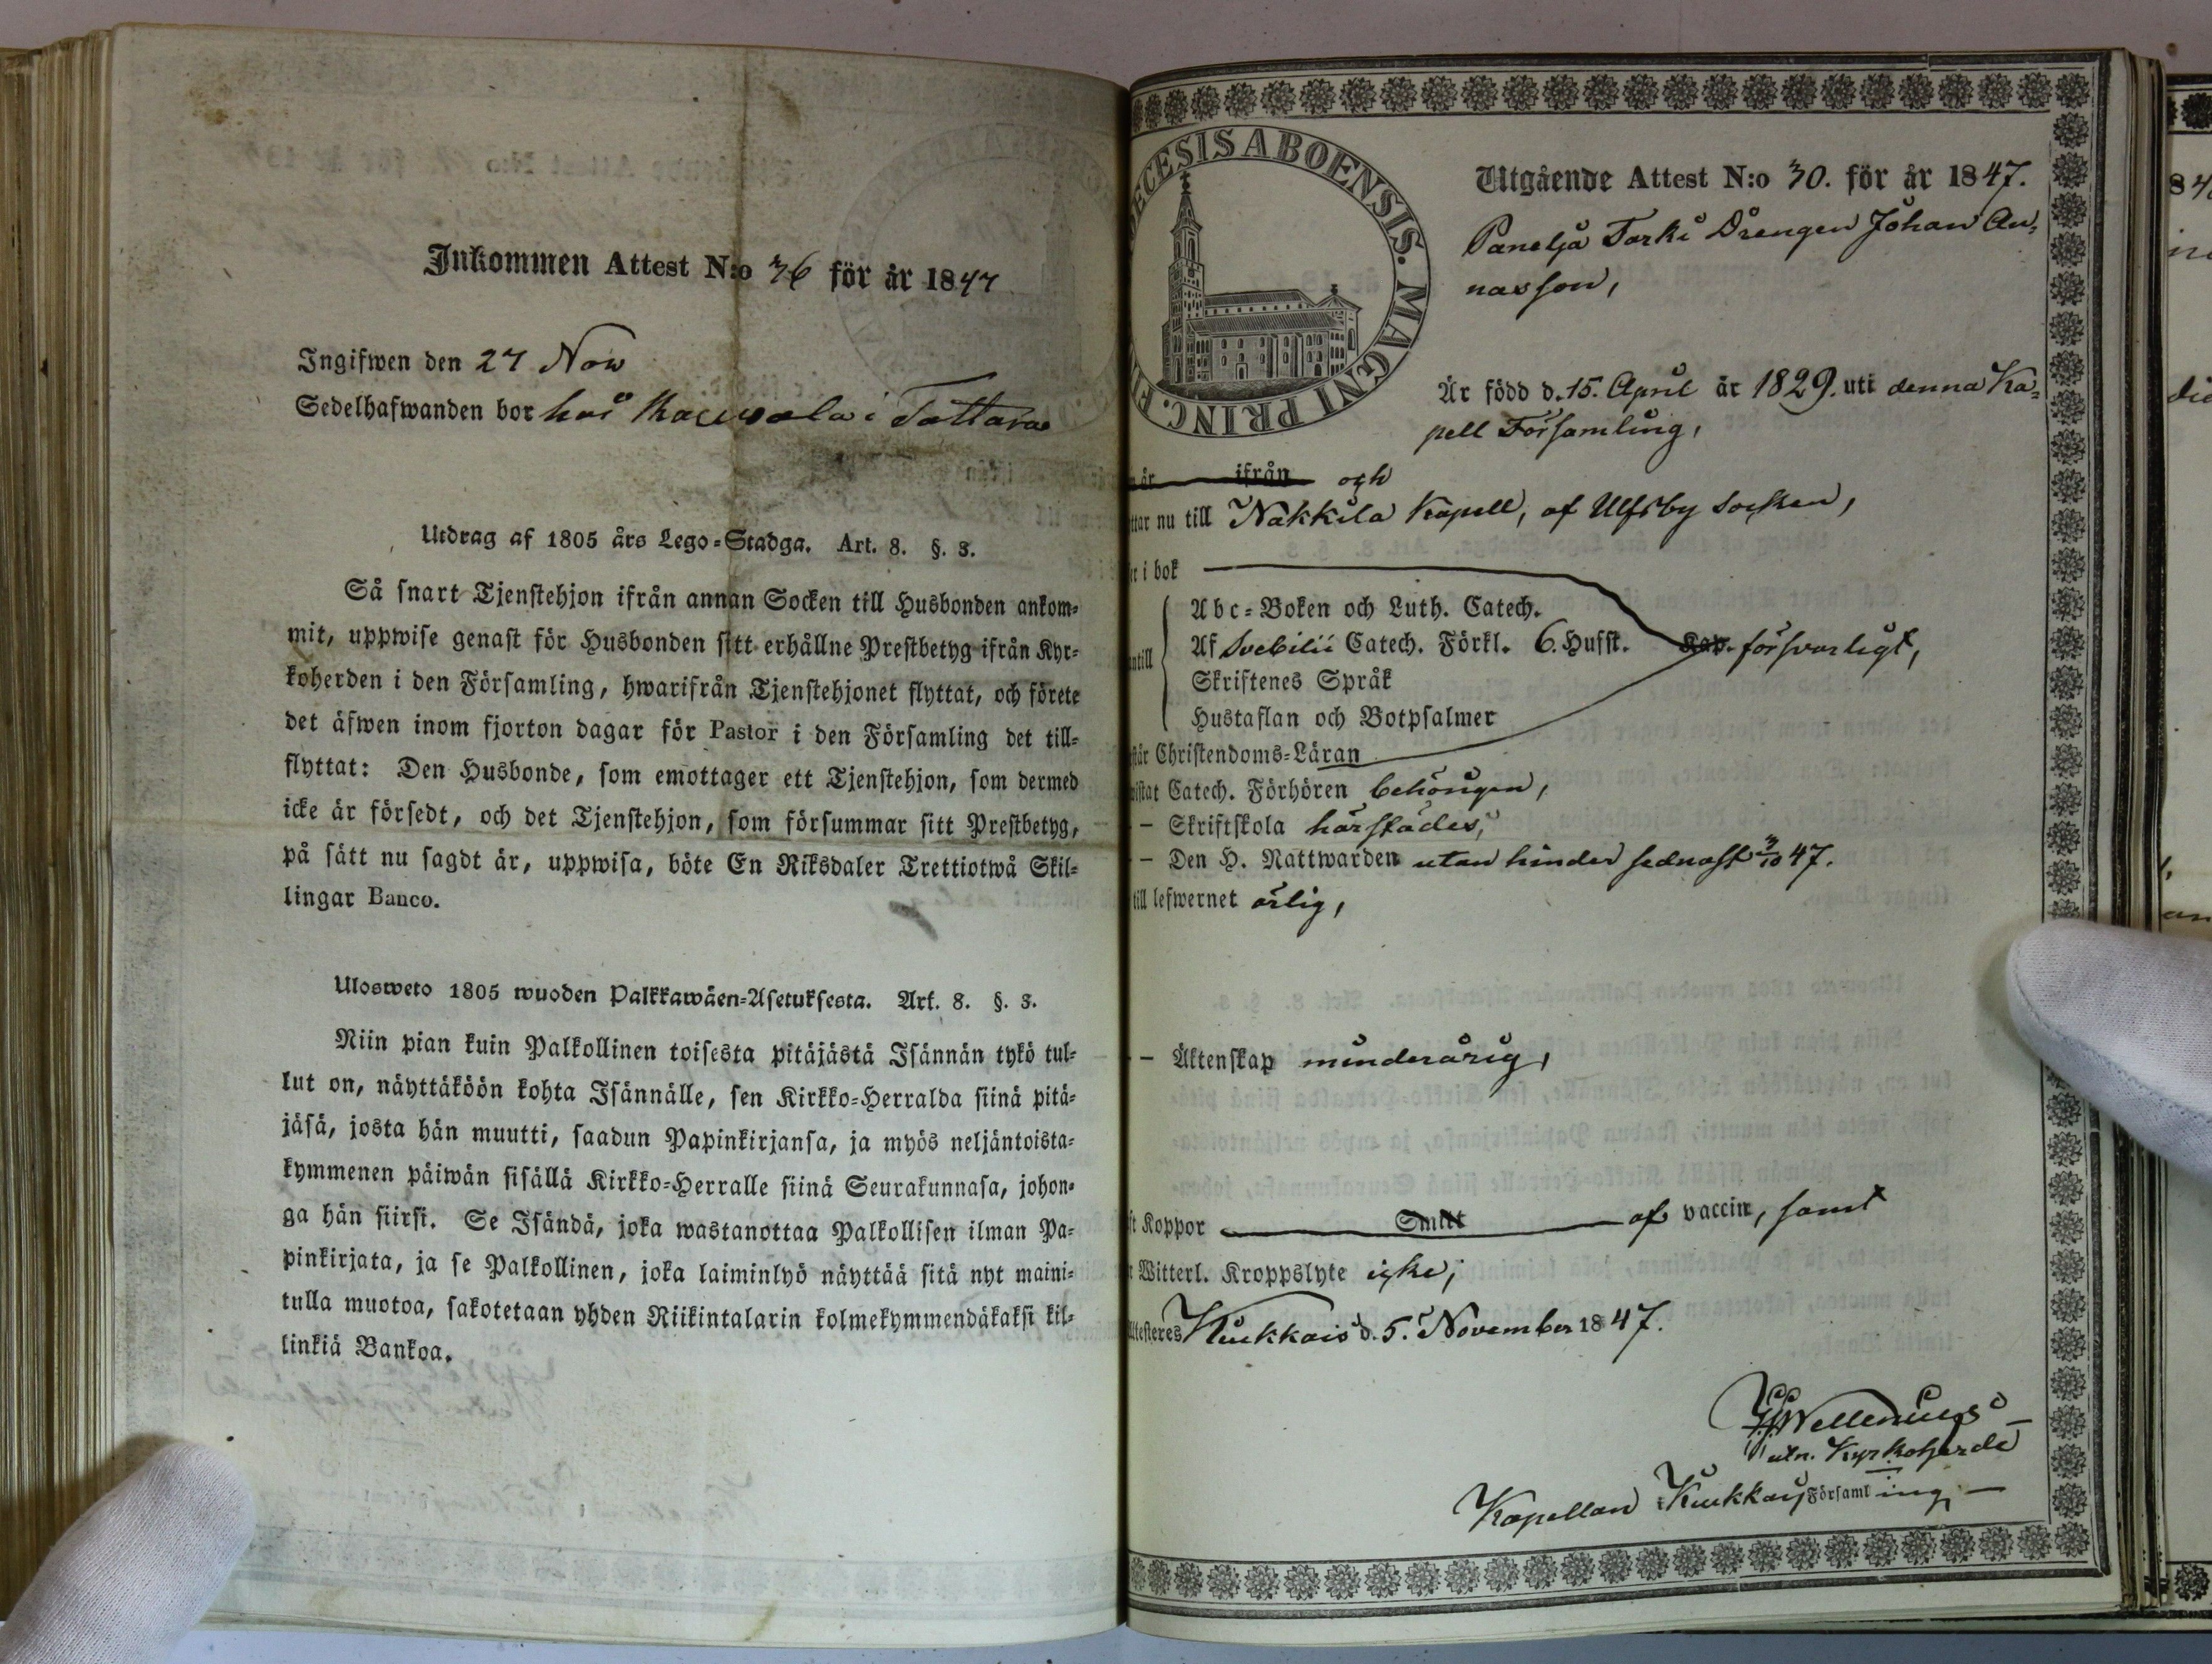 Inkommen Attest N:o 36 för år 1847
Ingifwen den 27 Now
Sedelhafwanden bor hos i Tattara
Utdrag af 1805 års Lego-Stadga. Art. 8. §. 3.
Så snart Tjenstehjon ifrån annan Socken till Husbonden ankom-
mit, uppwise genast för Husbonden sitt erhållne Prestbetyg ifrån Kyr-
koherden i den Församling, hwarifrån Tjenstehjonet flyttat, och förete
det äfwen inom fjorton dagar för Pastor i den Församling det till-
flyttat: Den Husbonde, som emottager ett Tjenstehjon, som dermed
icke är försedt, och det Tjenstehjon, som försummar sitt Prestbetyg,
på sätt nu sagdt är, uppwisa, böte En Riksdaler Trettiotwå Skil-
lingar Banco.
Ulosweto 1805 wuoden Palkkawäen-Asetuksesta. Art. 8. §. 3.
Niin pian kuin Palkollinen toisesta pitäjästä Isännän tykö tul-
lut on, näyttäköön kohta Isännälle, sen Kirkko-Herralda siinä pitä-
jäsä, josta hän muutti, saadun Papinkirjansa, ja myös neljäntoista-
kymmenen päiwän sisällä Kirkko-Herralle siinä Seurakunnasa, johon-
ga hän siirsi. Se Isändä, joka wastanottaa Palkollisen ilman Pa-
pinkirjata, ja se Palkollinen, joka laiminlyö näyttää sitä nyt maini-
tulla muotoa, sakotetaan yhden Riikintalarin kolmekymmendäkaksi kil-
linkiä Bankoa.
DECESIS ABOENSIS. MAGNI PRINC. FI
Utgående Attest N:o 30. för år 1847.
Panelja Torki Drengen Johan An-
nasson,
Är född d. 15. April år 1829. uti denna Ka-
pell Församling,
år ifrån och
ttar nu till Nakkila Kapell, af Ulfsby Socken,
i bok
Abc-Boken och Luth. Catech.
ntill Af Svebilii Catech. Förkl. 6. Hufst. Kap. försvarligt,
Skriftenes Språk
Hustaflan och Botpsalmer
står Christendoms-Läran
wistat Catech. Förhören behörigen,
– Skriftskola härstädes,
– Den H. Nattwarden utan hinder sednast 3/10 47.
till lefwernet ärlig,
– Äktenskap minderårig,
ft Koppor Smitt af vaccin, samt
r Witterl. Kroppslyte icke;
Attesteres Kiukkais d. 5. November 1847.
Wellenius
utn. Kyrkoherde
Kapellan i Kiukkais Församling.